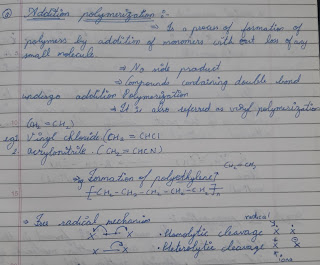 Addition polymerization :-
⇒ Is a process of formation of
polymers by addition of monomers with out loss of any
small molecule
⇒ No side product
⇒ Compounds containing double bond
undergo addition Polymerization
⇒ It is also referred as vinyl polymerization
(CH2 = CH2)
eg: 1. Vinyl chloride (CH2 = CHCl
2. Acrylonitrile. (CH2 = CHCN)
CH2 = CH2
eg Formation of polyethylene:
[-CH2 - CH2 - CH2 - CH2 - CH2-]n
⇒ Free radical mechanism
radical
X X • Homolytic cleavage Ẋ Ẋ
X X • Heterolytic cleavage X X
ions